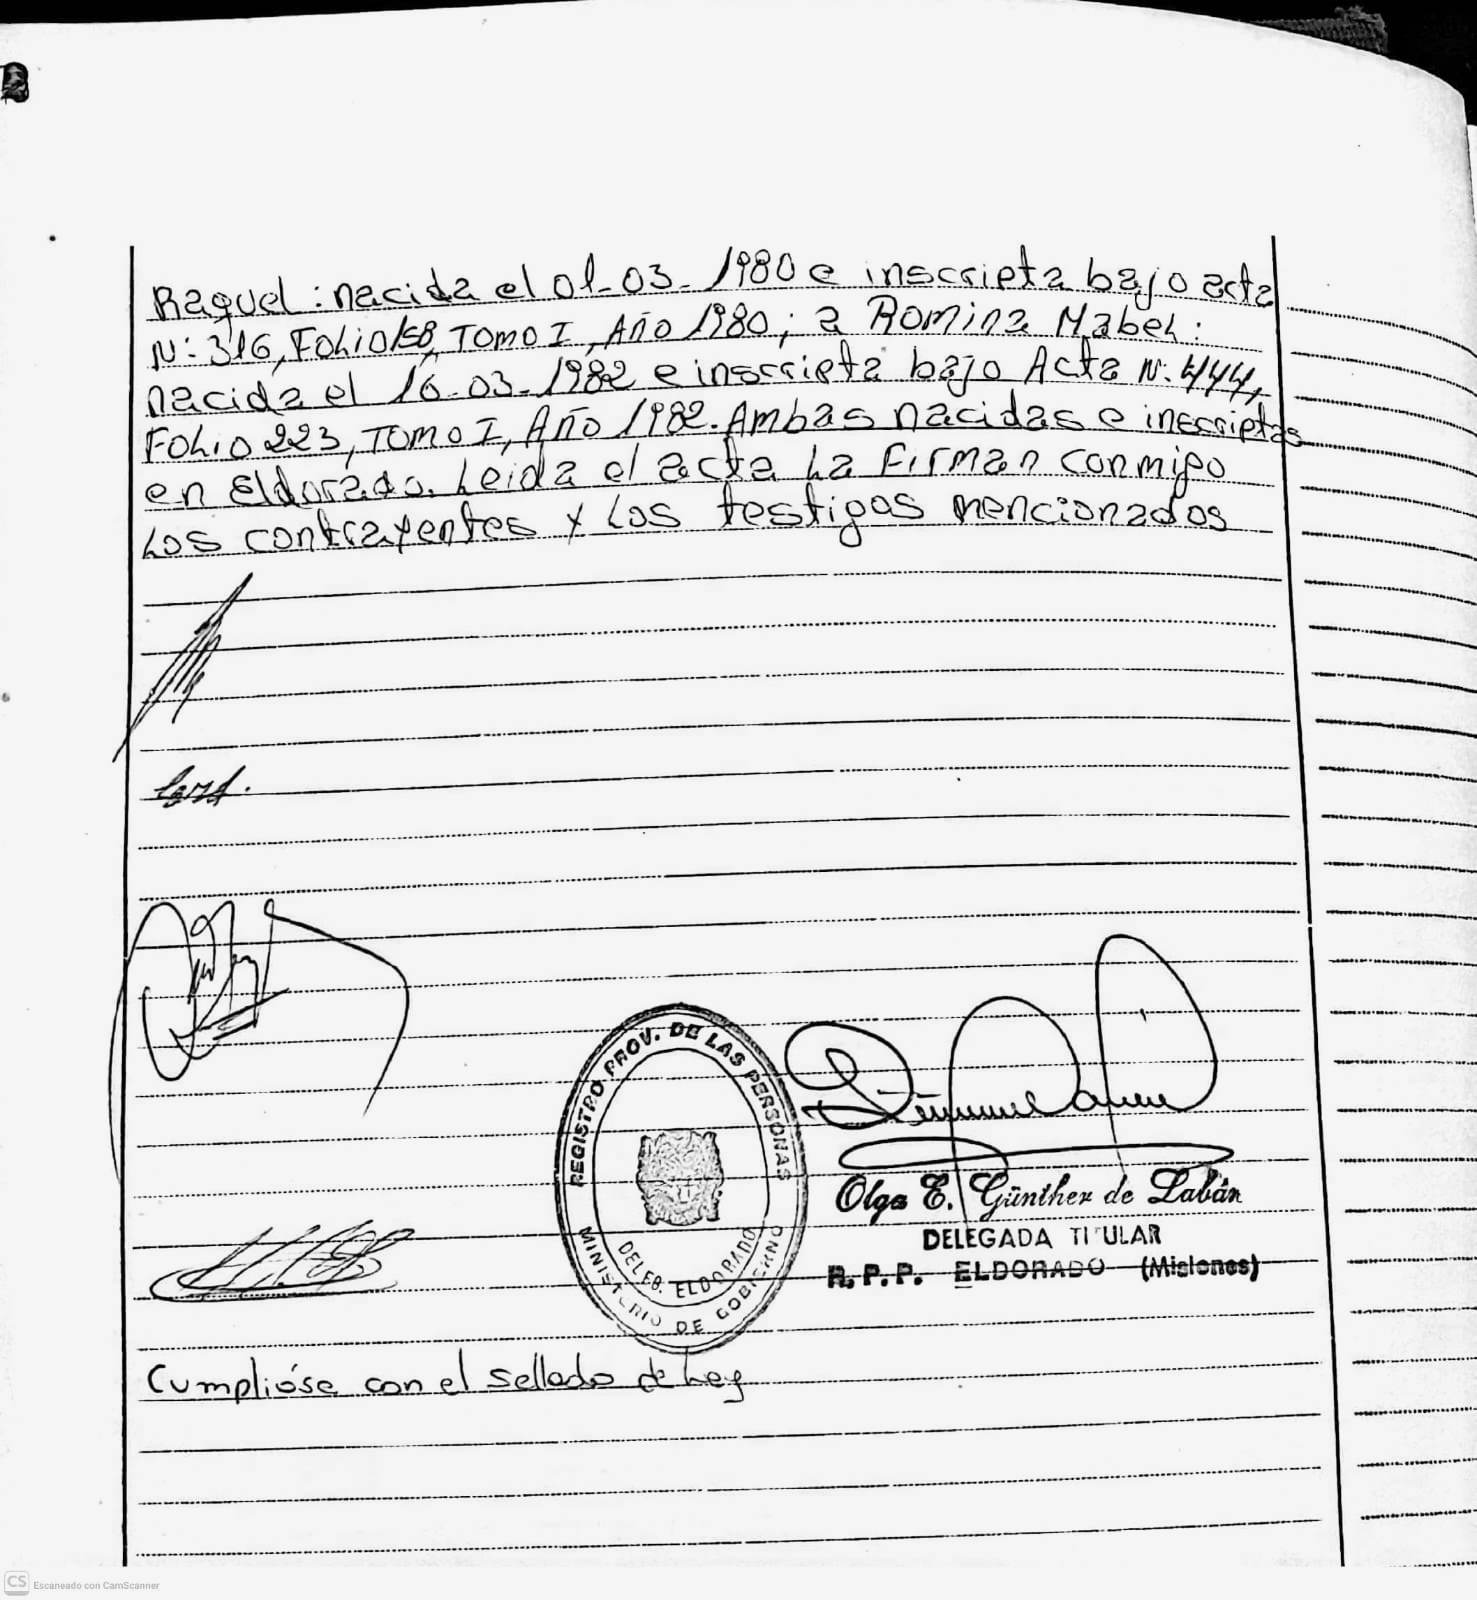 Raquel: nacida el 01-03-1980 e inscripta bajo acta
N: 316, Folio 158, Tomo I, Año 1980; a Romina Mabel:
nacida el 16-03-1982 e inscripta bajo Acta N: 444,
Folio 223, Tomo I, Año 1982. Ambas nacidas e inscriptas
en Eldorado. Leida el acta La Firman conmigo
Los contrayentes y Los testigos mencionados
REGISTRO PROV. DE LAS PERSONAS
MINISTERIO DE GOBIERNO
DELEG. ELDORADO
Olga E. Günther de Labán
DELEGADA TITULAR
R. P. P. ELDORADO (Misiones)
Cumplióse con el sellado de Ley
CS Escaneado con CamScanner